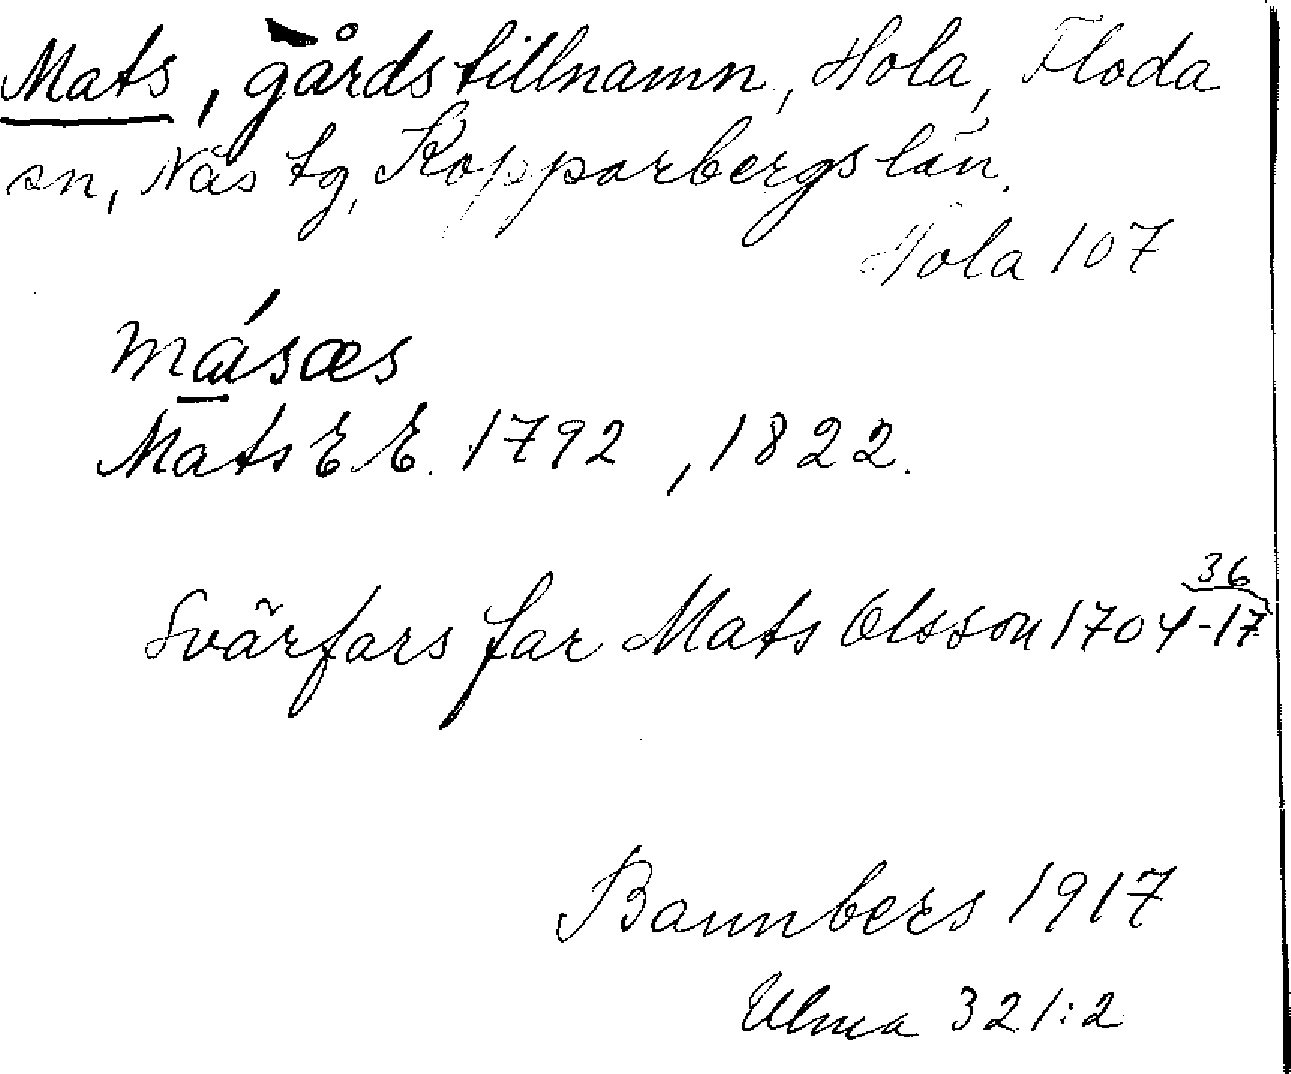 Mats, gårdstillnamn, Hola, Floda
sn, Näs tg, Kopparbergs län.
Hola 107
másæs
Mats E E. 1792 , 1822.
36
Svärfars far Mats Olsson 1704-17
Bannbers 1917
Ulma 321:2